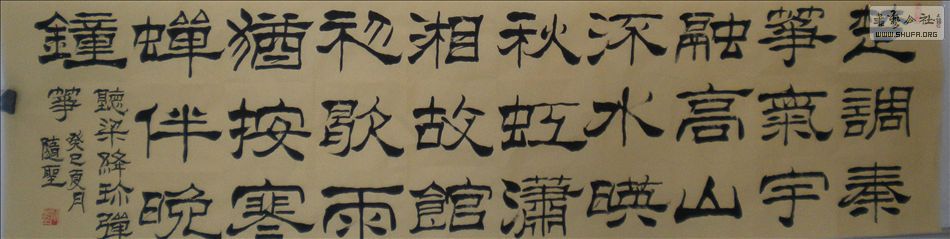 楚調秦
箏氣宇
融高山
流水映
秋虹瀟
湘故館
初歇雨
猶按寒
蟬伴晚
鐘
聽梁絳珍彈
箏
癸巳夏月
隨聖
書藝公社
WWW.SHUFA.ORG